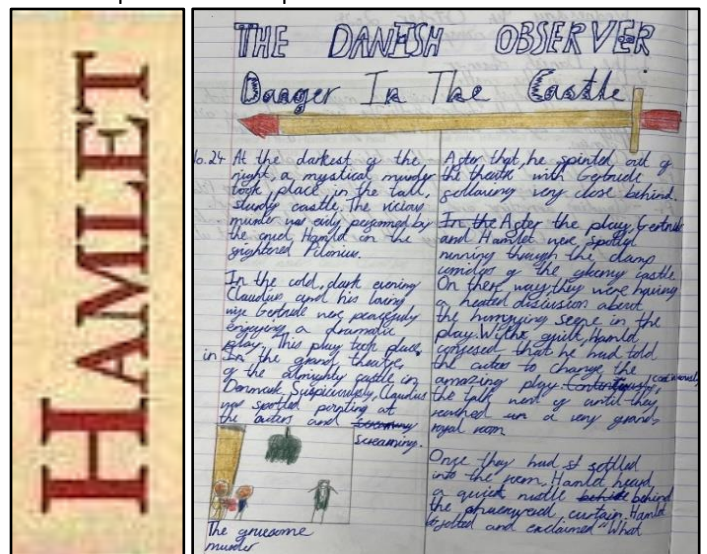 HAMLET
THE DANISH OBSERVER
Danger In The Castle
At the darkest of the
night, a mystical murder
took place in the tall,
sturdy castle. The vicious
murder was evily performed by
the cruel Hamlet on the
frightened Polonius.
In the cold, dark evening
Claudius and his loving
wife Gertrude were peacefully
enjoying a dramatic
play. This play took place
in In the grand theatre,
of the almighty castle in
Denmark. Suspiciously, Claudius
was spotted pointing at
the actors and
screaming.
The gruesome
murder
After that, he sprinted out of
the theatre with Gertrude
following very close behind.
In the After the play, Gertrude
and Hamlet were spotted
running through the damp
corridors of the gloomy castle.
On there way they were having
a heated discussion about
the horrifying scene in the
play. With guilt, Hamlet
confessed that he had told
the actors to change the
amazing play. continuously,
the talk went of until they
reached a very grand,
royal room
Once they had settled
into the room, Hamlet heard
a quick rustle behind
the curtain. Hamlet
and exclaimed "What